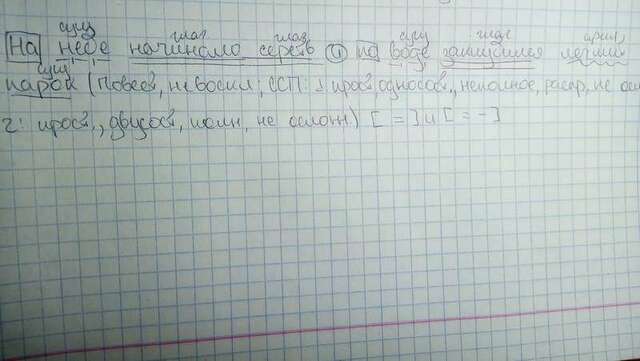 сущ глаг глаг сущ глаг прил
На небе начинало сереть и по воде задымился легкий
сущ
парок (Повес, невоскл, ССП: 1: прост, односос, неполное, распр, не осл
2: прост, двусос, полн, не осложн) [ = ] и [ = - ]